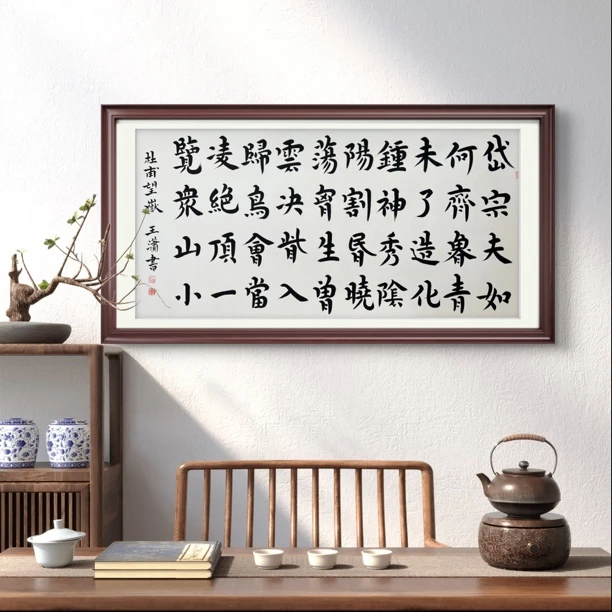 岱宗夫如
何齊魯青
未了造化
鍾神秀陰
陽割昏曉
蕩胷生曾
雲决眥入
歸鳥會當
凌絶頂一
覽衆山小
杜甫望嶽 王瀟書